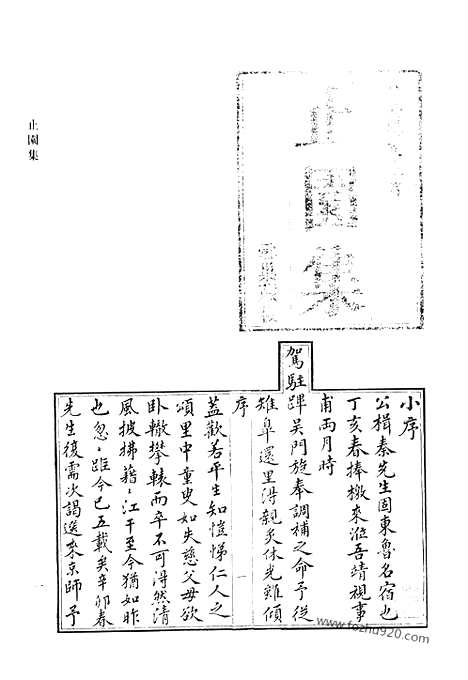 止園集
止園集
小序
公楫秦先生固東魯名宿也
丁亥春捧檄來涖吾靖視事
甫兩月時
駕駐蹕吳門旋奉調補之命予從
雉臯還里得親炙休光雖傾
序
蓋歡若平生知愷悌仁人之
頌里中童叟如失慈父母欲
臥轍攀轅而卒不可得然清
風披拂藉〻江干至今猶如昨
也忽〻距今已五載矣辛卯春
先生復需次謁選來京師予
www.fozhu920.com